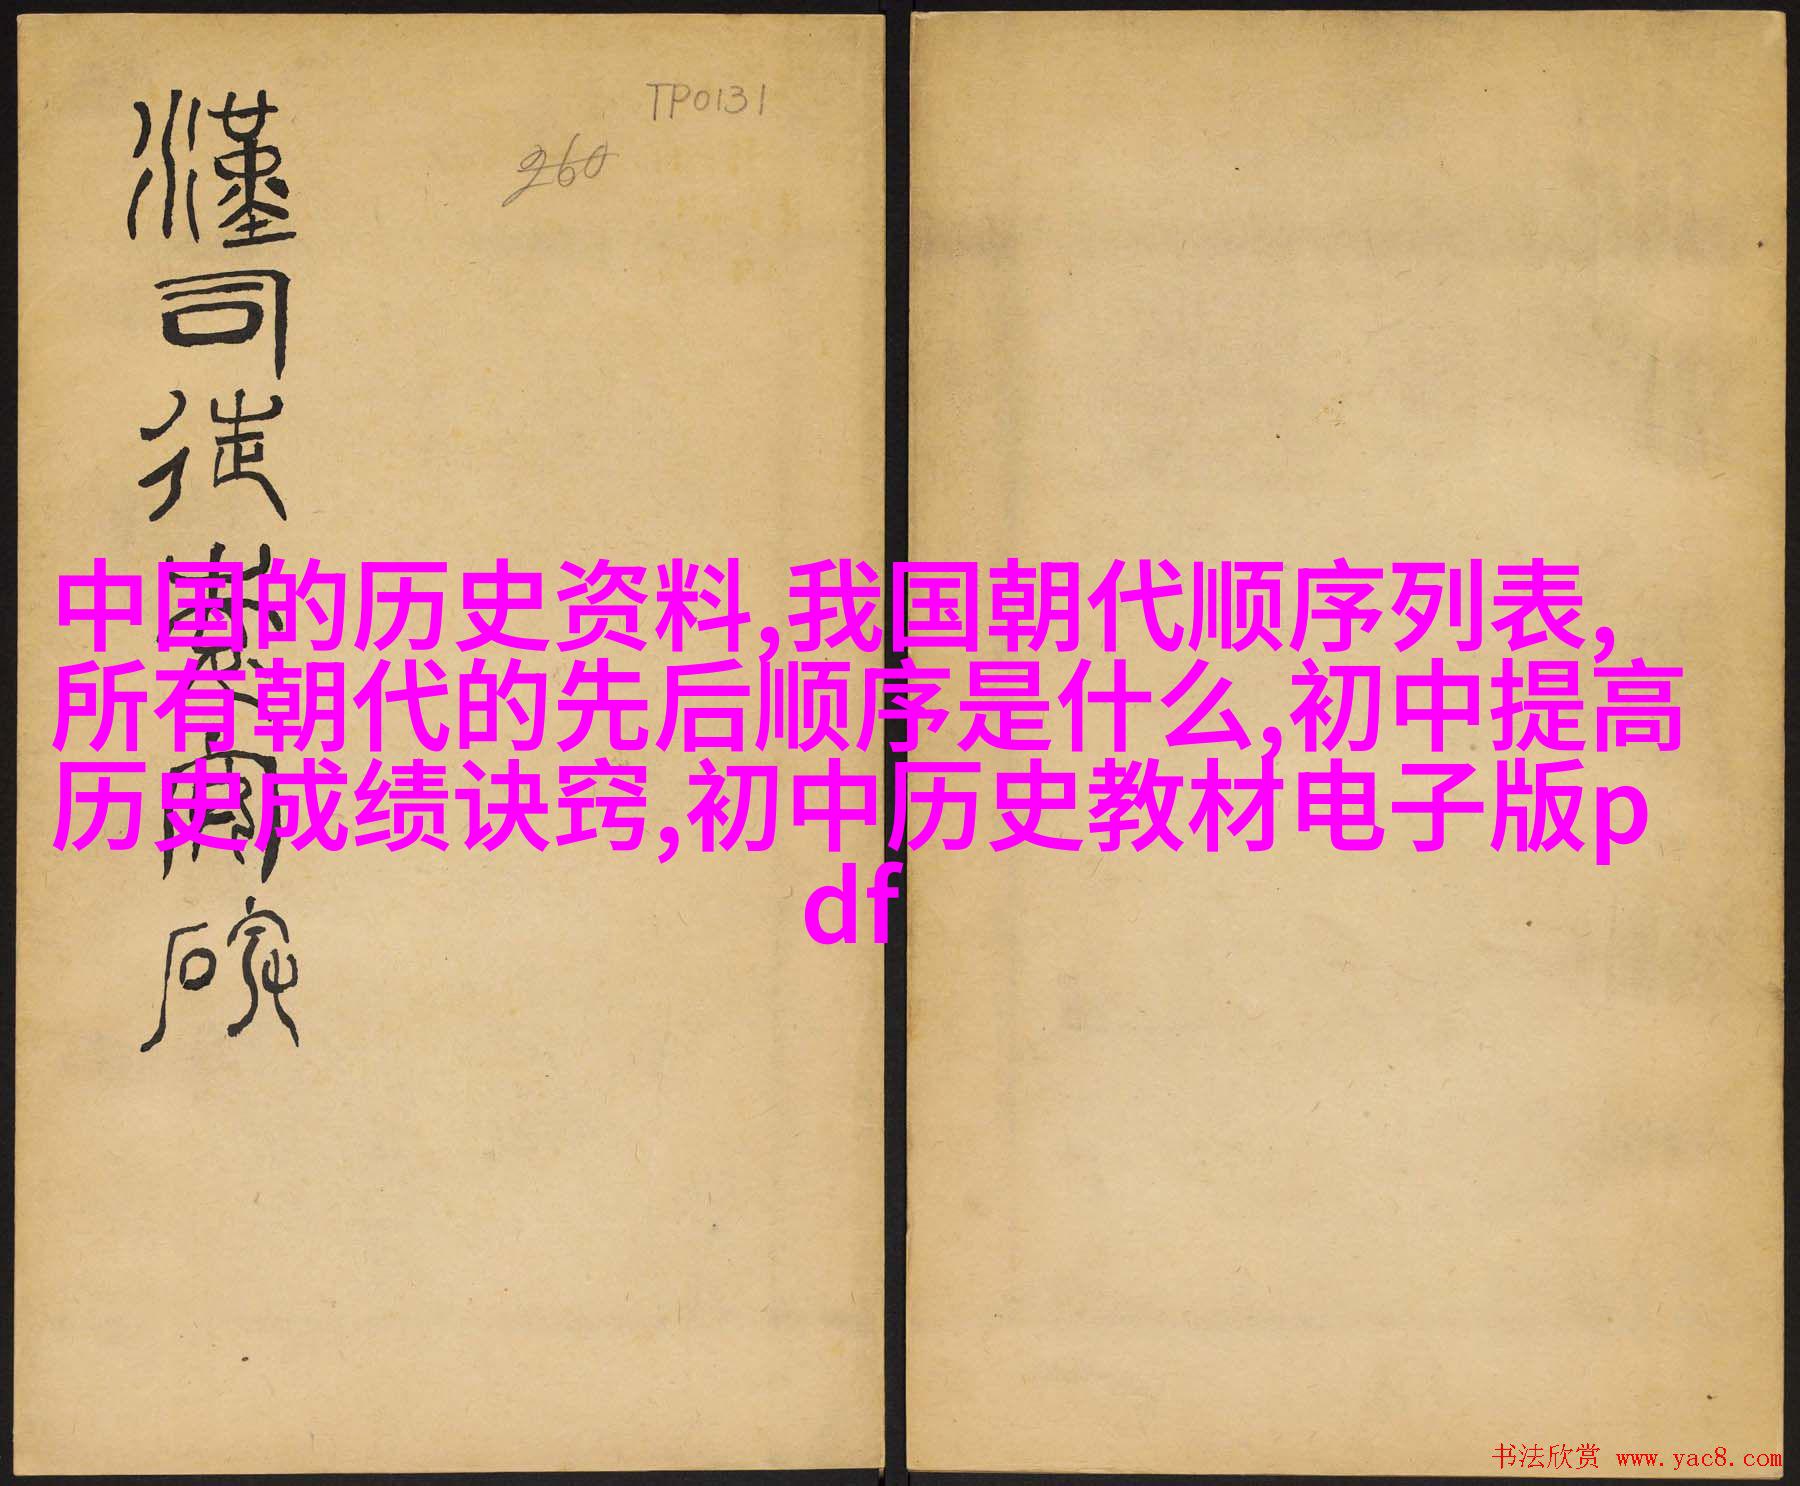 TP0131
260
漢司徒
中国的历史资料,我国朝代顺序列表,
所有朝代的先后顺序是什么,初中提高
历史成绩诀窍,初中历史教材电子版p
df
书法欣赏 www.yac8.com